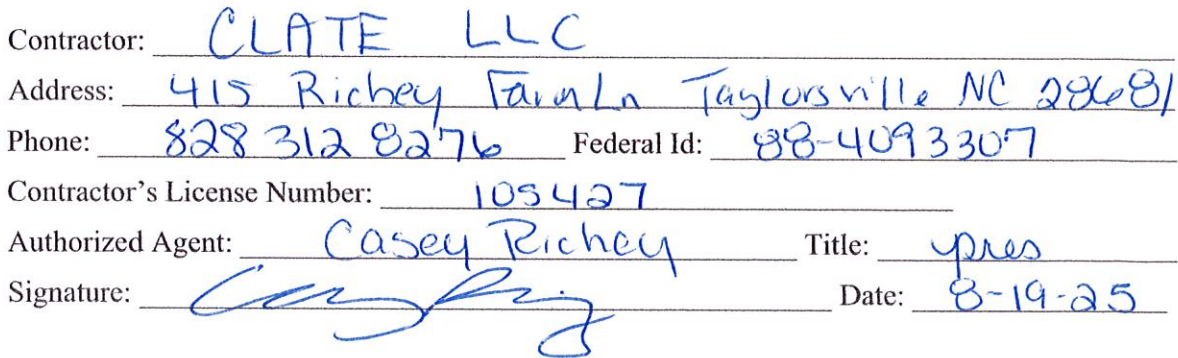 Contractor: CLATE LLC
Address: 415 Richey Farm Ln Taylorsville NC 28681
Phone: 828 312 8276 Federal Id: 88-4093307
Contractor's License Number: 105427
Authorized Agent: Casey Richey Title: vpres
Signature: Date: 8-19-25